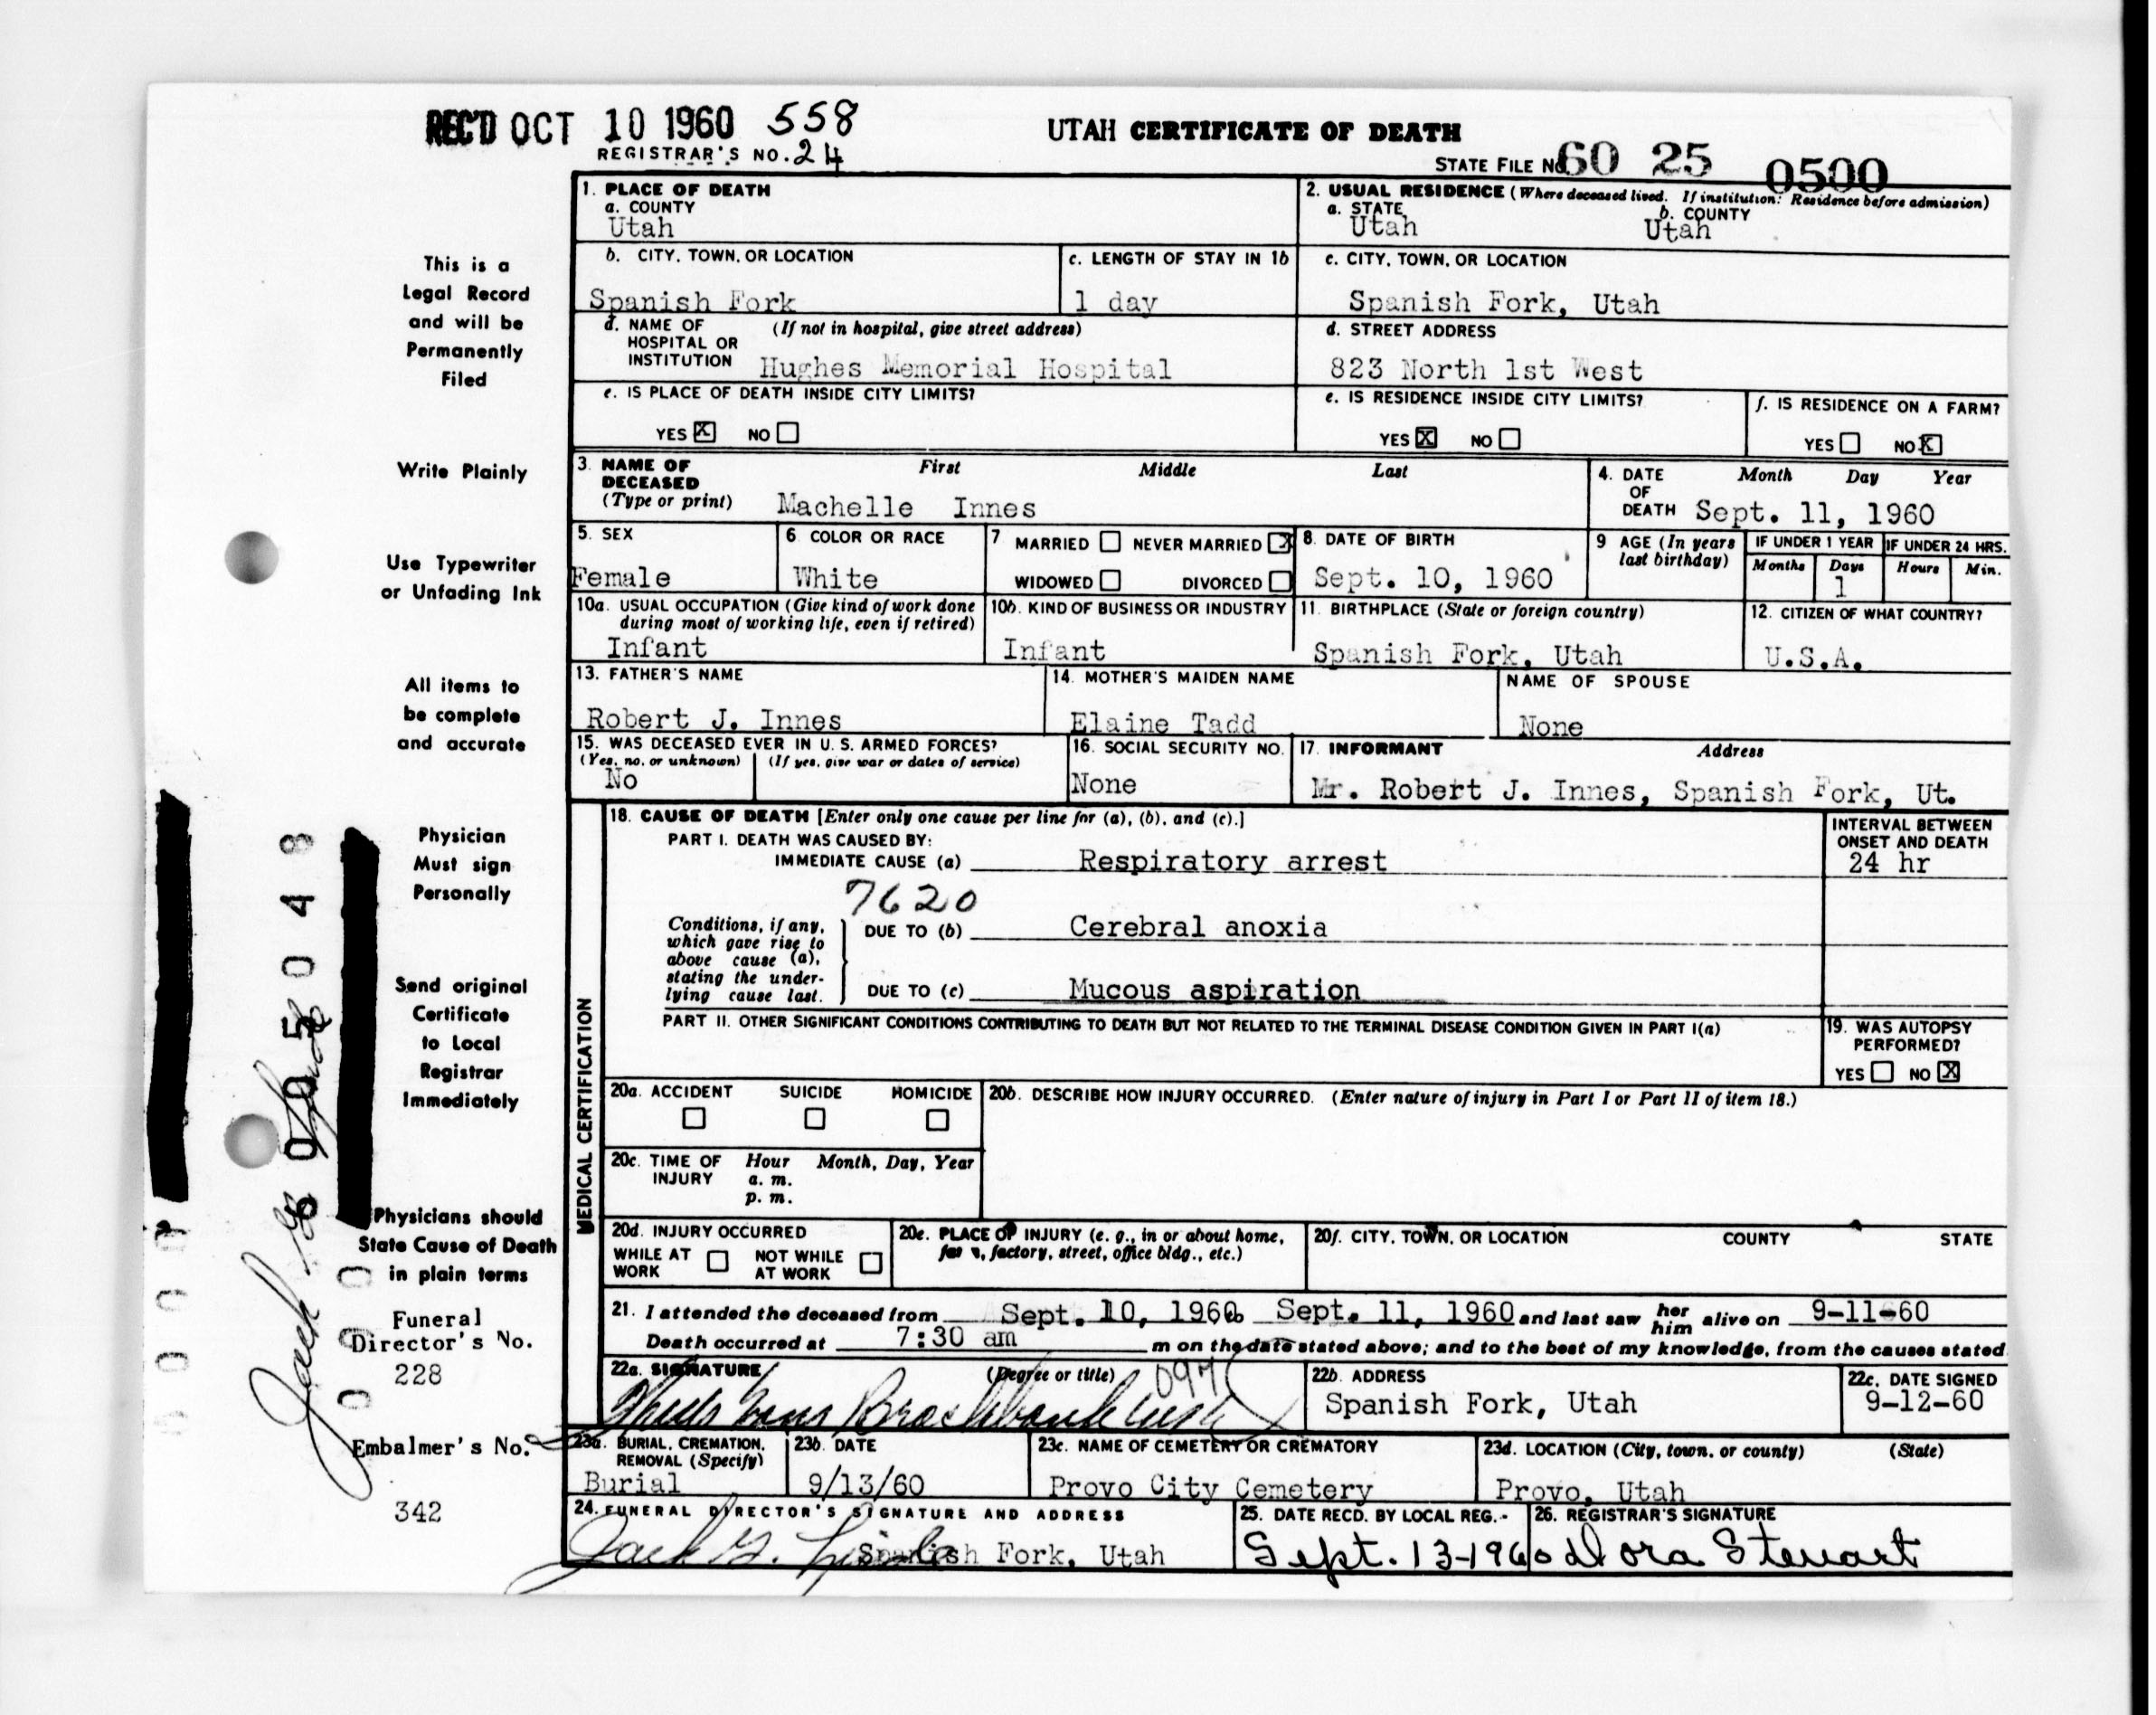 REC'D OCT 10 1960 558
UTAH CERTIFICATE OF DEATH
REGISTRAR'S NO. 24
STATE FILE NO. 60 25 0500
This is a
Legal Record
and will be
Permanently
Filed
Write Plainly
Use Typewriter
or Unfading Ink
All items to
be complete
and accurate
Physician
Must sign
Personally
Send original
Certificate
to Local
Registrar
Immediately
Physicians should
State Cause of Death
in plain terms
Funeral
Director's No.
228
Embalmer's No.
342
1. PLACE OF DEATH
a. COUNTY
Utah
2. USUAL RESIDENCE (Where deceased lived. If institution: Residence before admission)
a. STATE b. COUNTY
Utah Utah
b. CITY, TOWN, OR LOCATION
Spanish Fork
c. LENGTH OF STAY IN 1b
1 day
c. CITY, TOWN, OR LOCATION
Spanish Fork, Utah
d. NAME OF (If not in hospital, give street address)
HOSPITAL OR
INSTITUTION Hughes Memorial Hospital
d. STREET ADDRESS
823 North 1st West
e. IS PLACE OF DEATH INSIDE CITY LIMITS?
YES X NO
e. IS RESIDENCE INSIDE CITY LIMITS?
YES X NO
f. IS RESIDENCE ON A FARM?
YES NO X
3. NAME OF First Middle Last
DECEASED
(Type or print) Machelle Innes
4. DATE Month Day Year
OF
DEATH Sept. 11, 1960
5. SEX
Female
6 COLOR OR RACE
White
7 MARRIED NEVER MARRIED X
WIDOWED DIVORCED
8. DATE OF BIRTH
Sept. 10, 1960
9 AGE (In years
last birthday)
IF UNDER 1 YEAR
Months Days
1
IF UNDER 24 HRS.
Hours Min.
10a. USUAL OCCUPATION (Give kind of work done
during most of working life, even if retired)
Infant
10b. KIND OF BUSINESS OR INDUSTRY
Infant
11. BIRTHPLACE (State or foreign country)
Spanish Fork, Utah
12. CITIZEN OF WHAT COUNTRY?
U.S.A.
13. FATHER'S NAME
Robert J. Innes
14. MOTHER'S MAIDEN NAME
Elaine Tadd
NAME OF SPOUSE
None
15. WAS DECEASED EVER IN U. S. ARMED FORCES?
(Yes, no, or unknown) (If yes, give war or dates of service)
No
16. SOCIAL SECURITY NO.
None
17. INFORMANT Address
Mr. Robert J. Innes, Spanish Fork, Ut.
MEDICAL CERTIFICATION
18. CAUSE OF DEATH [Enter only one cause per line for (a), (b), and (c).]
PART I. DEATH WAS CAUSED BY:
IMMEDIATE CAUSE (a) Respiratory arrest
INTERVAL BETWEEN
ONSET AND DEATH
24 hr
7620
Conditions, if any,
which gave rise to
above cause (a),
stating the under-
lying cause last.
DUE TO (b) Cerebral anoxia
DUE TO (c) Mucous aspiration
PART II. OTHER SIGNIFICANT CONDITIONS CONTRIBUTING TO DEATH BUT NOT RELATED TO THE TERMINAL DISEASE CONDITION GIVEN IN PART I(a)
19. WAS AUTOPSY
PERFORMED?
YES NO X
20a. ACCIDENT SUICIDE HOMICIDE
20b. DESCRIBE HOW INJURY OCCURRED. (Enter nature of injury in Part I or Part II of item 18.)
20c. TIME OF Hour Month, Day, Year
INJURY a. m.
p. m.
20d. INJURY OCCURRED
WHILE AT NOT WHILE
WORK AT WORK
20e. PLACE OF INJURY (e. g., in or about home,
farm, factory, street, office bldg., etc.)
20f. CITY, TOWN, OR LOCATION COUNTY STATE
21. I attended the deceased from Sept. 10, 1960 Sept. 11, 1960 and last saw her him alive on 9-11-60
Death occurred at 7:30 am m on the date stated above; and to the best of my knowledge, from the causes stated
22a. SIGNATURE (Degree or title)
22b. ADDRESS
Spanish Fork, Utah
22c. DATE SIGNED
9-12-60
23a. BURIAL, CREMATION,
REMOVAL (Specify)
Burial
23b. DATE
9/13/60
23c. NAME OF CEMETERY OR CREMATORY
Provo City Cemetery
23d. LOCATION (City, town, or county) (State)
Provo, Utah
24. FUNERAL DIRECTOR'S SIGNATURE AND ADDRESS
Jack Spanish Fork, Utah
25. DATE RECD. BY LOCAL REG.
Sept. 13-1960
26. REGISTRAR'S SIGNATURE
Dora Stewart